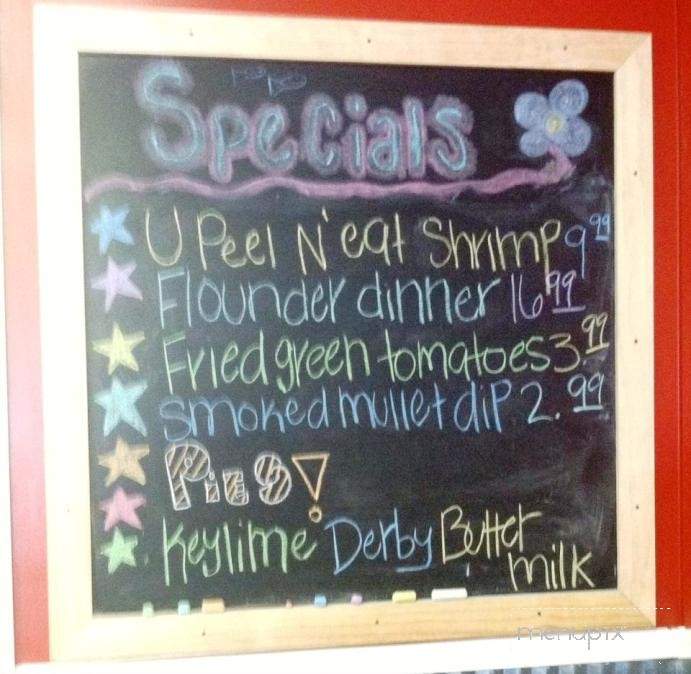 Specials
U Peel N' eat Shrimp 9 99
Flounder dinner 16 99
Fried green tomatoes 3 99
smoked mullet dip 2. 99
Pies!
Keylime Derby Butter
milk
menupix